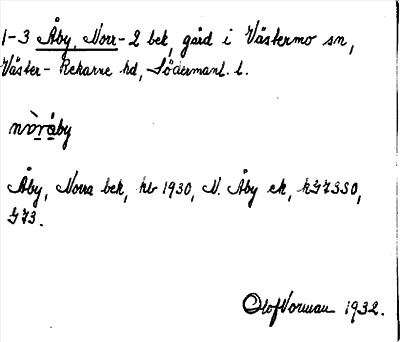 1-3 Åby, Norr- 2 bek, gård i Västermo sn,
Väster-Rekarne hd, Södermanl. l.
nòråby
Åby, Norra bek, hb 1930, N. Åby ek,
G73.
Olof Norman 1932.